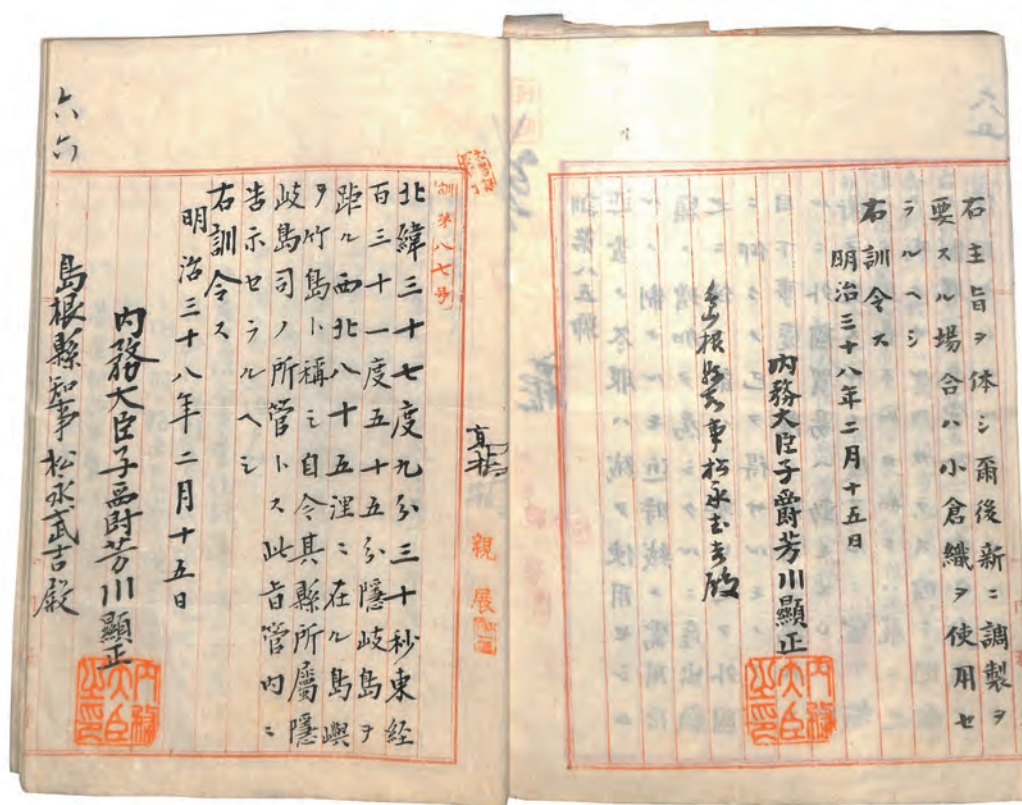 右主旨ヲ体シ爾後新ニ調製ヲ
要スル場合ハ小倉織ヲ使用セ
ラルヘシ
右訓令ス
明治三十八年二月十五日
内務大臣子爵芳川顯正
内務大臣之印
島根縣知事松永武吉殿
親展
訓第八七号
北緯三十七度九分三十秒東経
百三十一度五十五分隠岐島ヲ
距ル西北八十五浬ニ在ル島嶼
ヲ竹島ト稱シ自今其縣所屬隠
岐島司ノ所管トス此旨管内ニ
告示セラルヘシ
右訓令ス
明治三十八年二月十五日
内務大臣子爵芳川顯正
内務大臣之印
島根縣知事松永武吉殿
六六